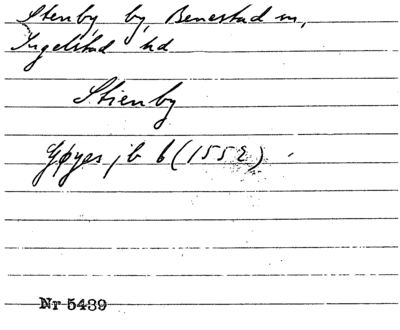 Stenby, by, Benestad sn,
Ingelstad hd
Stienby
Gøyes jb 6 (1552)
Nr 5439